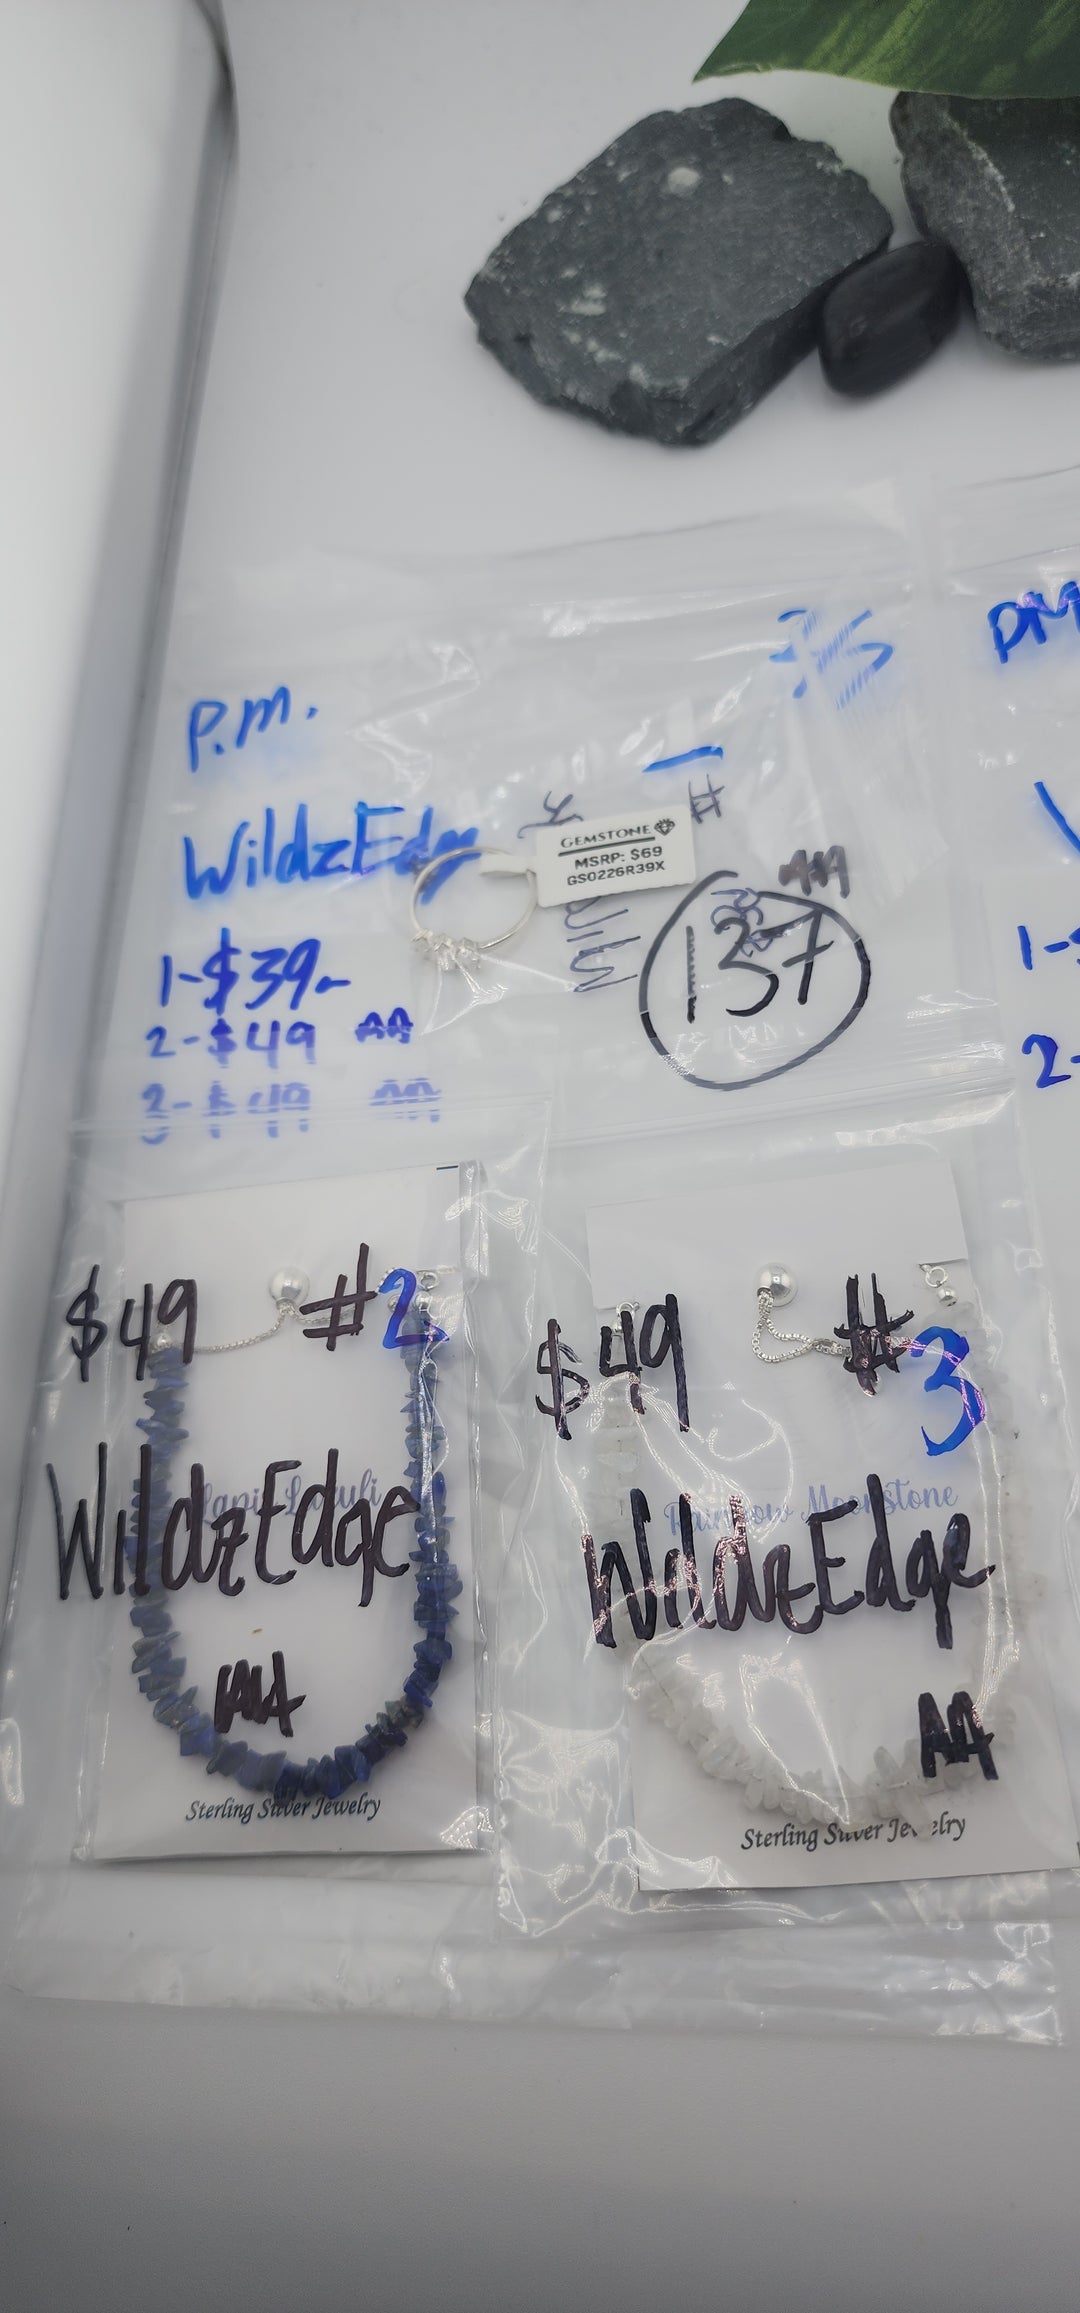 P.M.
WildzEdge
1-$39-
2-$49 AA
3-$49 AA
GEMSTONE
MSRP: $69
GS0226R39X
#
AA
137
PM
1-$
2-
$49 #2
Lapis Lazuli
WildzEdge
AA
Sterling Silver Jewelry
$49 #3
Rainbow Moonstone
WildzEdge
AA
Sterling Silver Jewelry